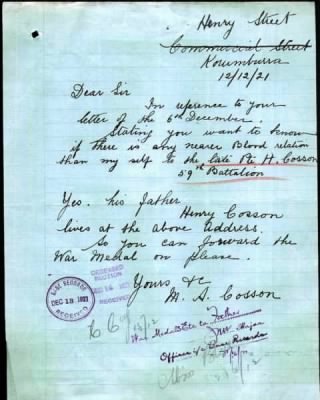 Henry Street
Commercial Street
Korumburra
12/12/21
Dear Sir
In reference to your
letter of the 6th December.
Stating you want to know
if there is any nearer Blood relation
than my self to the late Pte H. Cosson
59th Battalion
Yes. his father
Henry Cosson
lives at the above Address.
So you can forward the
War Medal on please.
Yours &c
M. A. Cosson
DECEASED
SECTION
RECEIVED
BASE RECORDS
DEC 13 1921
RECEIVED
War Medal to Father
Major
Officer i/c Base Records